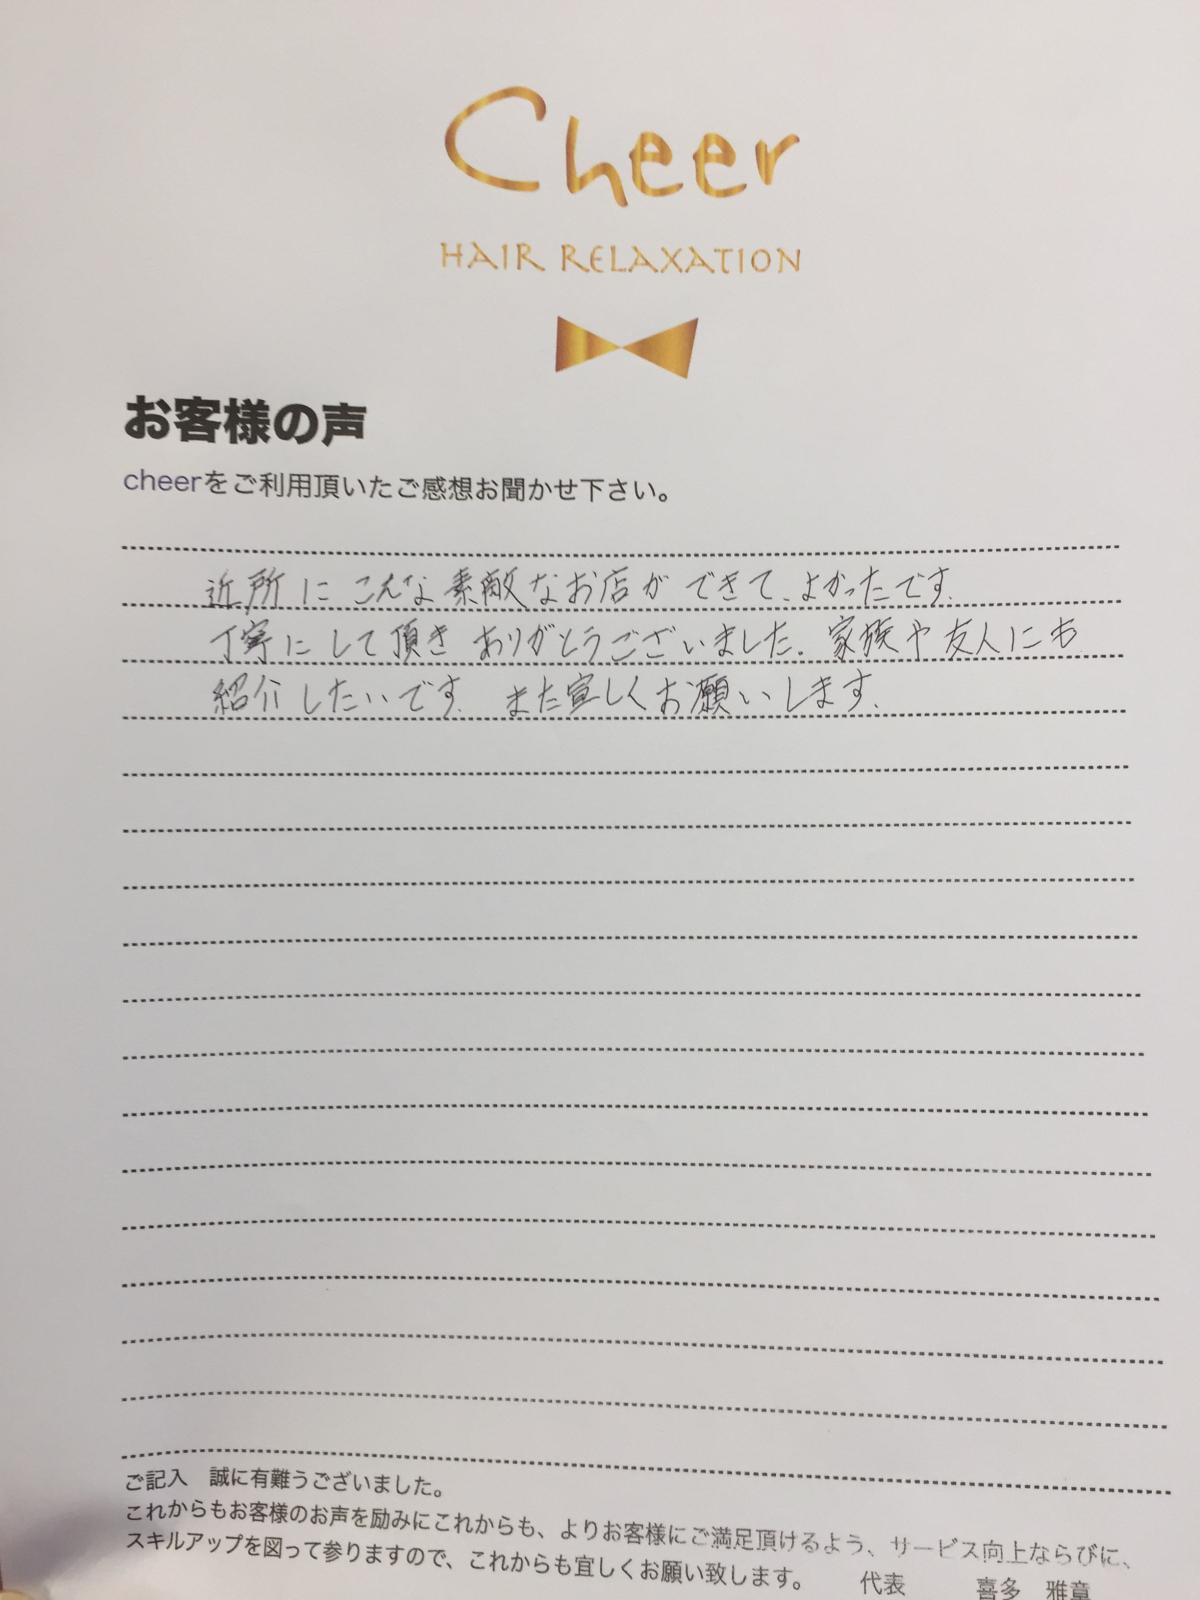 Cheer
HAIR RELAXATION
お客様の声
cheerをご利用頂いたご感想お聞かせ下さい。
近所にこんな素敵なお店ができて、よかったです。
丁寧にして頂きありがとうございました。家族や友人にも
紹介したいです。また宜しくお願いします。
ご記入　誠に有難うございました。
これからもお客様のお声を励みにこれからも、よりお客様にご満足頂けるよう、サービス向上ならびに、
スキルアップを図って参りますので、これからも宜しくお願い致します。　代表　喜多　雅章